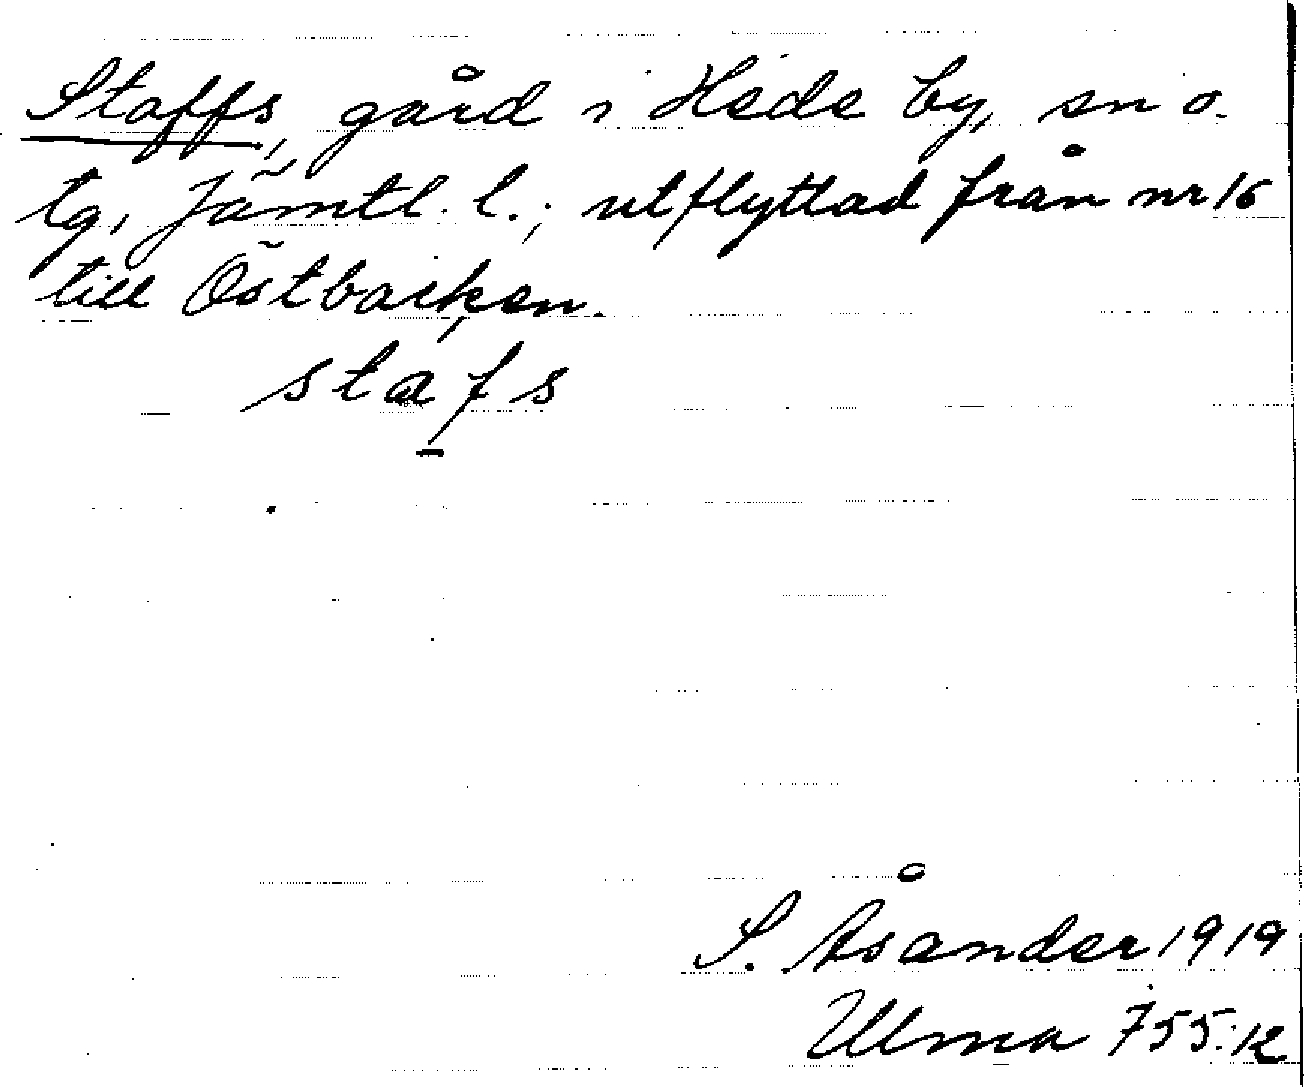 Staffs, gård i Hede by, sn o.
tg, Jämtl. l.; utflyttad från nr 16
till Östbacken.
stafs
S. Åsander 1919
Ulma 755:12